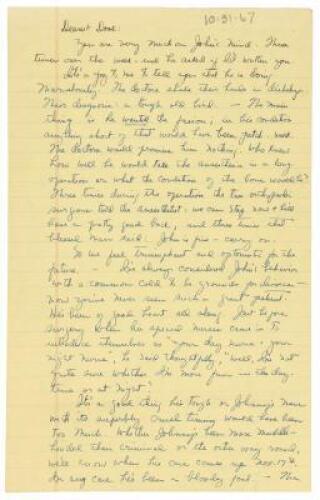 10-31-67
Dearest Dove:
You are very much on John's mind. Three
times over the week-end he asked if I'd written you
It's a joy to me to tell you that he is doing
marvelously. The doctors shake their heads in disbelief.
Their diagnosis: a tough old bird. — The main
thing is he would the prison; in his condition
anything short of that would have been
The doctors would promise him nothing. Who knew
how well he would take the anaesthesia in a long
operation or what the condition of the bone would be?
Three times during the operation the two orthopedic
surgeons told the anaesthetist: we can stop now & still
have a pretty good back, and three times that
blessed man said: John is fine — carry on.
So we feel triumphant and optimistic for the
future. — I've always considered John's behavior
with a common cold to be grounds for divorce —
now you've never seen such a great patient.
He's been of good heart all along. Just before
surgery when his special nurses came in to
introduce themselves as "your day nurse & your
night nurse", he said thoughtfully, "Well, I'm not
quite sure whether I'm more fun in the day-
time or at night."
It's a good thing he's tough or Johnny's news
with its superbly cruel timing would have been
too much. Whether Johnny's been more muddle-
headed than criminal or the other way round,
we'll know when his case comes up Nov. 17th.
In any case he's been a bloody fool. —